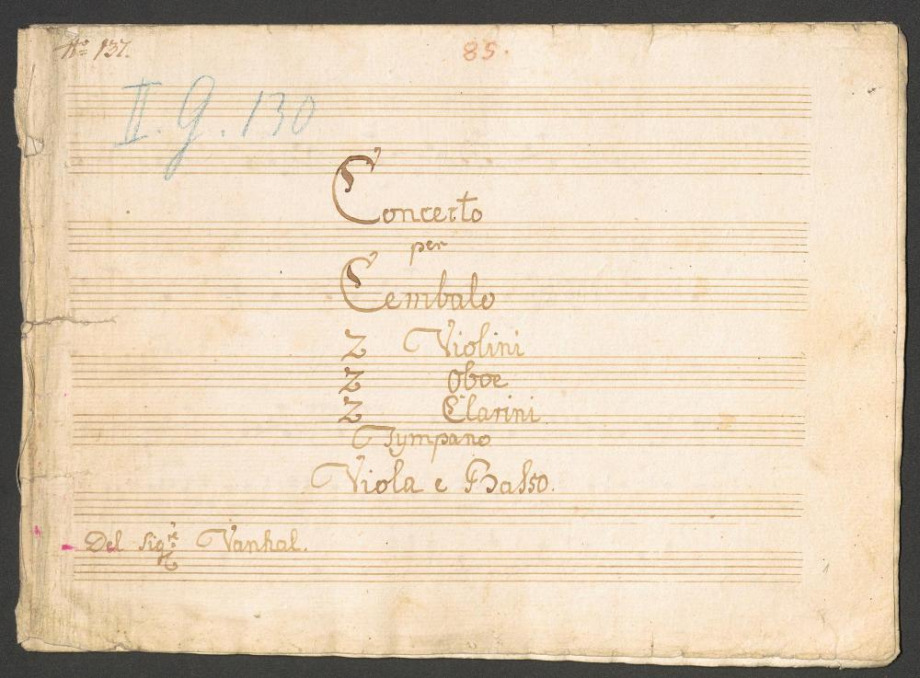 No 137.
85.
II. G. 130
Concerto
per
Cembalo
2 Violini
2 Oboe
2 Clarini
Tympano
Viola e Basso.
Del Sigre Vanhal.